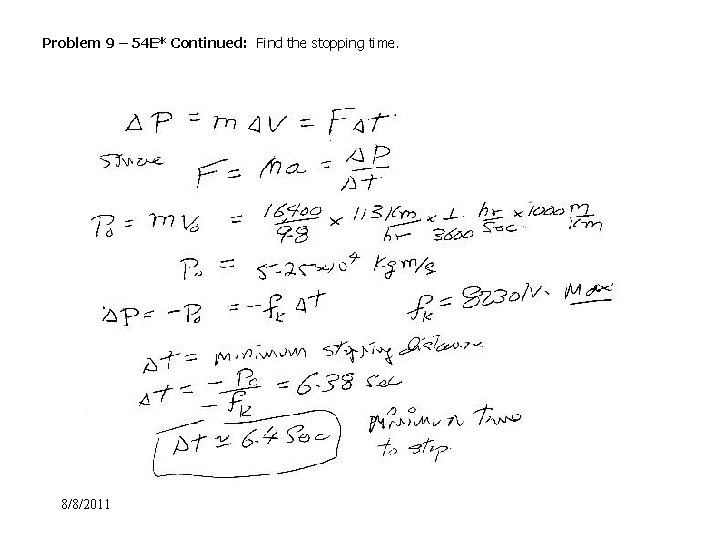 Problem 9 – 54E* Continued: Find the stopping time.
ΔP = m ΔV = F Δt
Since F = ma = ΔP/Δt
P₀ = mV₀ = 16400/9.8 × 113 Km/hr × 1/3600 hr/sec × 1000 m/Km
P₀ = 5.25×10⁴ Kg m/s
ΔP = -P₀ = -fₖ Δt fₖ = 8230N. Max
Δt = minimum stopping distance
Δt = -P₀/-fₖ = 6.38 sec
Δt ≃ 6.4 Sec minimum time
to stop.
8/8/2011